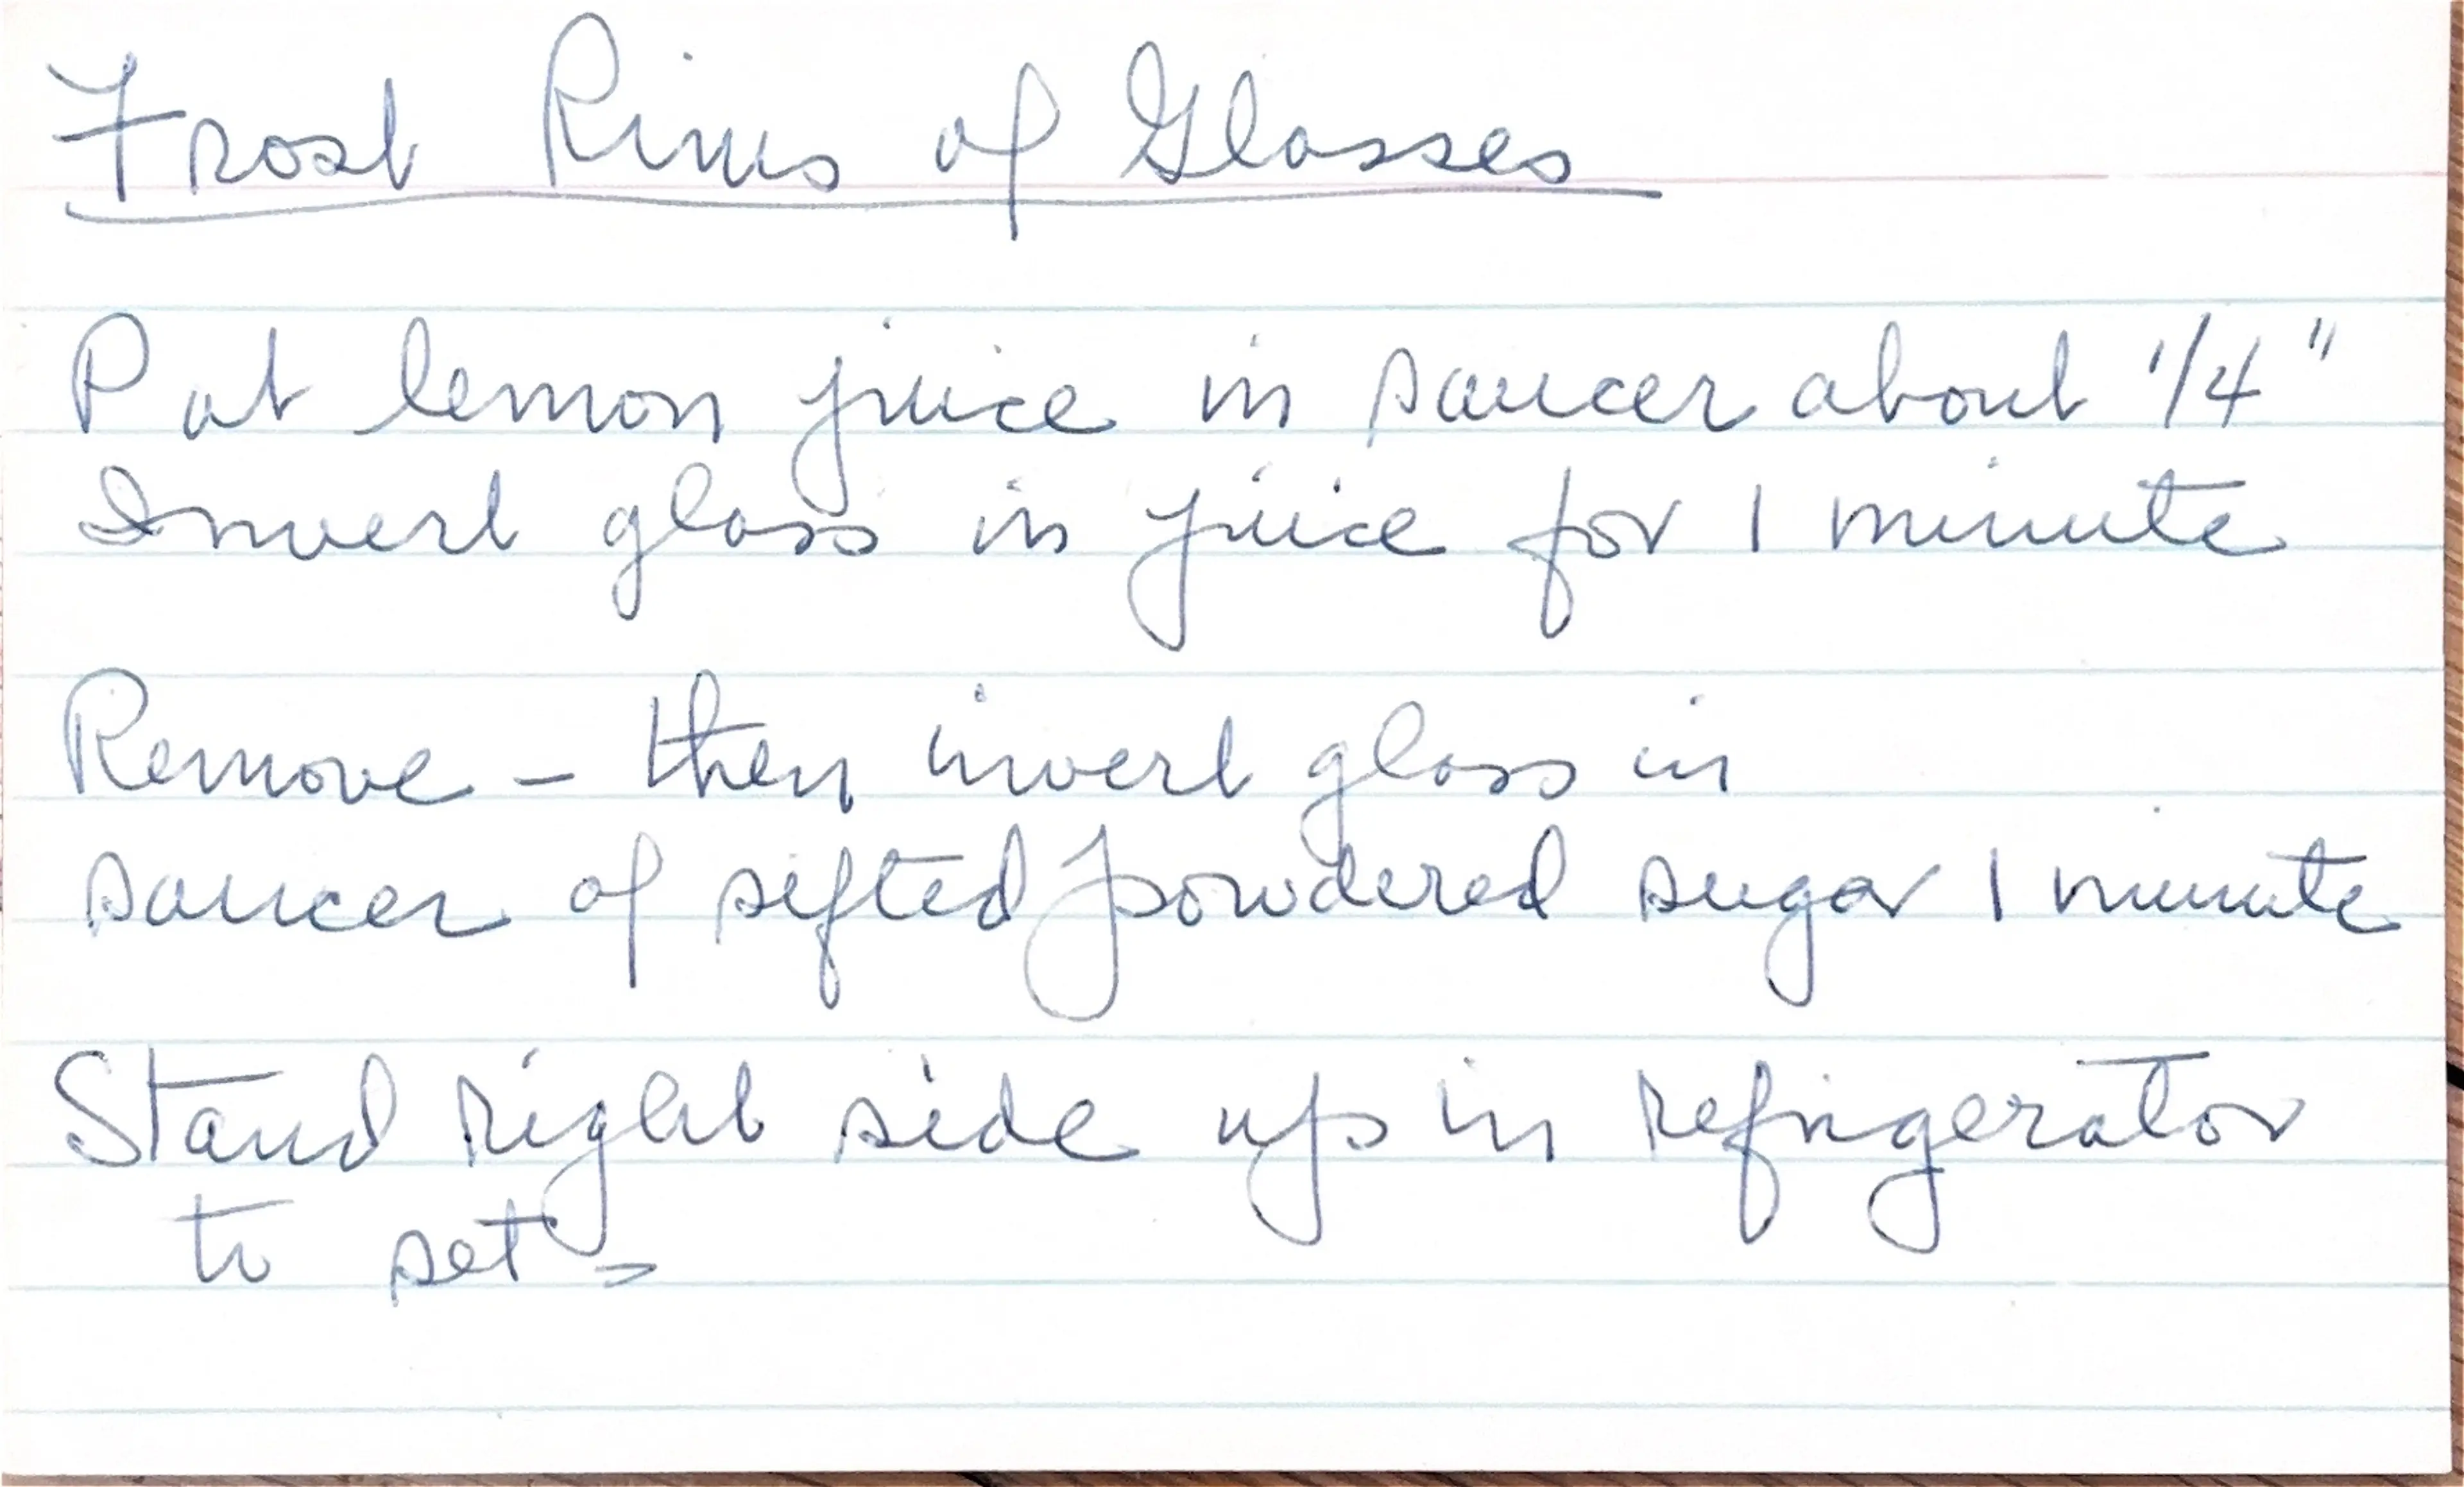 Frost Rims of Glasses
Put lemon juice in saucer about 1/4"
Invert glass in juice for 1 minute
Remove - then invert glass in
saucer of sifted powdered sugar 1 minute
Stand right side up in refrigerator
to set -